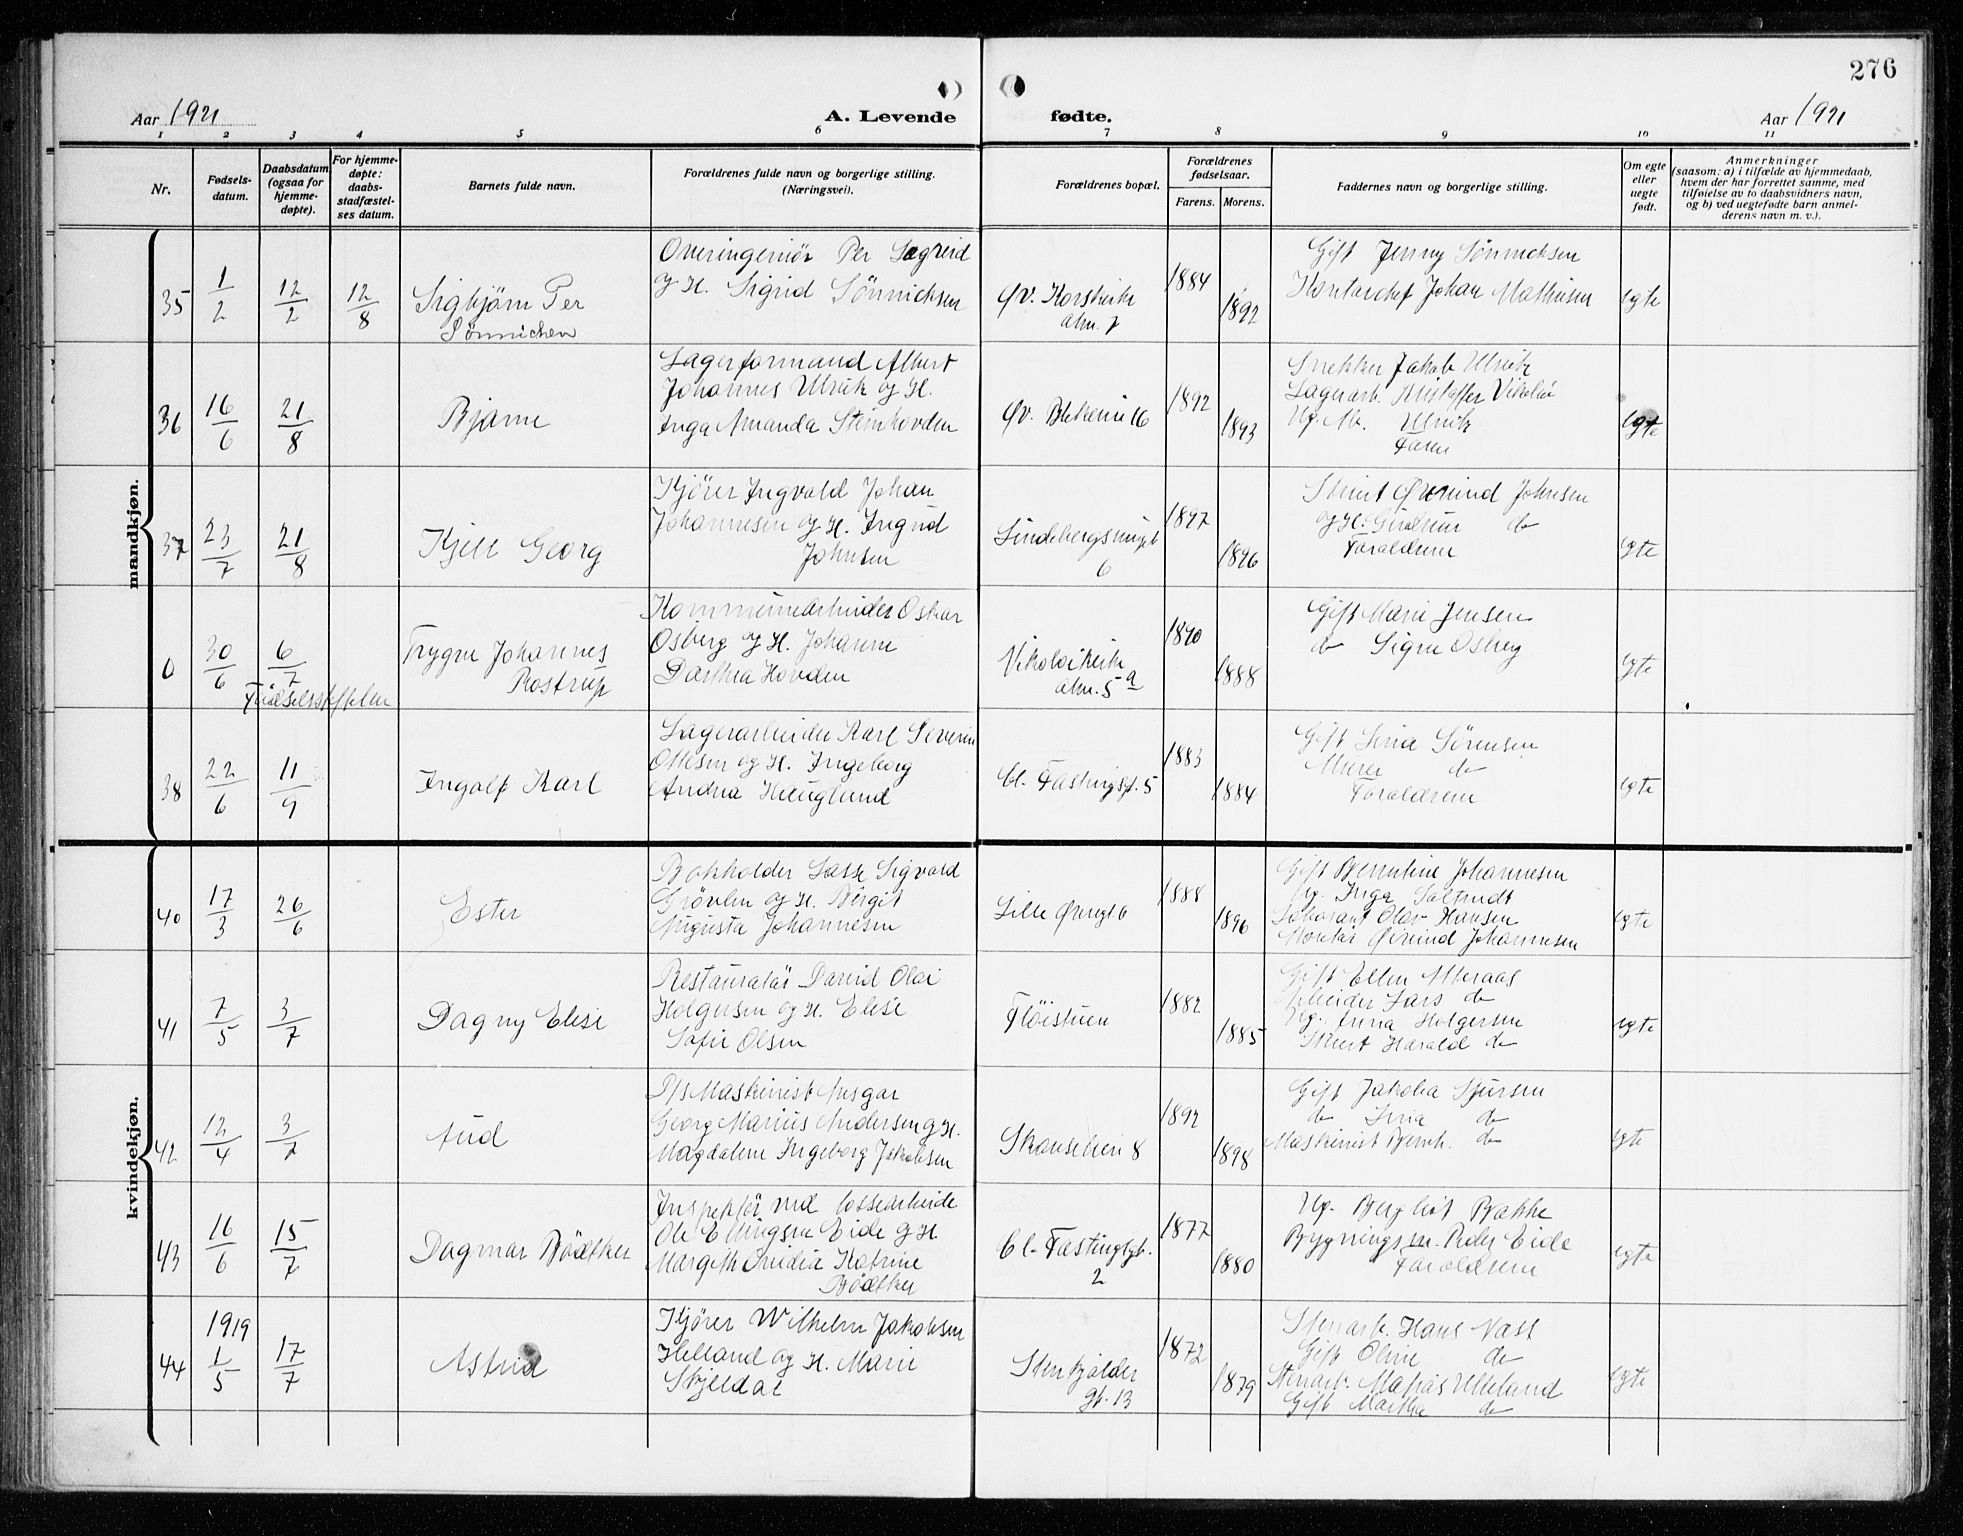 276
Aar 1921
A. Levende fødte.
Aar 1921
1 2 3 4 5 6 7 8 9 10 11
Nr.
Fødsels-
datum.
Daabsdatum
(ogsaa for
hjemme-
døpte).
For hjemme-
døpte:
daabs-
stadfæstel-
ses datum.
Barnets fulde navn.
Forældrenes fulde navn og borgerlige stilling.
(Næringsvei).
Forældrenes bopæl.
Forældrenes
fødselsaar.
Farens. Morens.
Faddernes navn og borgerlige stilling.
Om egte
eller
uegte
født.
Anmerkninger
(saasom: a) i tilfælde av hjemmedaab,
hvem der har forrettet samme, med
tilføielse av to daabsvidners navn,
og b) ved uegtefødte barn anmel-
derens navn m. v.).
mandkjøn.
35 1/2 12/2 12/8
Sigbjørn Per
Sönnichen
Overingeniör Per Sægreid
og H. Sigrid Sönnicksen
Øv. Korskirke
alm. 7
1884
1892
Gift Jenny Sönnicksen
Kontorchef Johan Mathiesen
egte
36 16/6 21/8
Bjarne
Lagerformand Albert
Johannes Ulrik og H.
Inga Amanda Steinhovden
Øv. Blekevei 16
1892
1893
Snekker Jakob Ulrik
Lagerarb. Kristoffer Nikolai
Ug. Ulrik
Faren
egte
37 23/7 21/8
Kjell Georg
Kjörer Ingvald Johan
Johannesen og H. Ingrid
Johnsen
Lindebergsmuget
6
1897
1896
Stuert Øivind Johnsen
og H. Gudrun do
Foraldrene
egte
0 30/6 6/7
Födselsstiftelsen
Trygve Johannes
Rostrup
Kommunearbeider Oskar
Osberg og H. Johanne
Darthea Hovden
Nikolaikirke
alm. 5 a
1890
1888
Gift Marie Jensen
do Signe Osberg
egte
38 22/6 11/9
Ingolf Karl
Lagerarbeider Karl Severin
Ottesen og H. Ingeborg
Andrea Haugland
Cl. Fastingsgt. 5
1883
1884
Gift Lina Sörensen
Murer do
Foraldrene
egte
kvindekjøn.
40 17/3 26/6
Ester
Bokholder Lasse Sigvard
Grövlen og H. Bergit
Augusta Johannesen
Lille Øvregt 6
1888
1896
Gift Berentine Johannesen
Ug. Inga Saltendt
Olav Hansen
Montör Øivind Johannesen
egte
41 7/5 3/7
Dagny Elise
Restauratör David Olai
Holgersen og H. Elise
Sofie Olsen
Flöistuen
1882
1885
Gift Ellen Alteraas
Arbeider Lars do
Ug. Anna Holgersen
Stuert Harald do
egte
42 12/4 3/7
Aud
D/s Maskinist Ansgar
Georg Marius Andersen og H.
Magdalene Ingeborg Jakobsen
Skanselien 8
1892
1898
Gift Jakoba Sjursen
do Lina do
Maskinist Bernh. do
egte
43 16/6 15/7
Dagmar Bödtker
Inspektör ved lossearbeide
Ole Ellingsen Eide og H.
Margeth Ovidia Katrine
Bödtker
Cl. Fastingsgt.
2
1877
1880
Ug. Bergliot Bakke
Bygningssn. Peder Eide
Foraldrene
egte
44 1919 1/5 17/7
Astrid
Kjörer Wilhelm Jakobsen
Helland og H. Marie
Skjeldal
Stenkjælder
gt. 13
1872
1879
Stenarb. Hans Nass
Gift Oline do
Stenarb. Matias Ulleland
Gift Martha do
egte